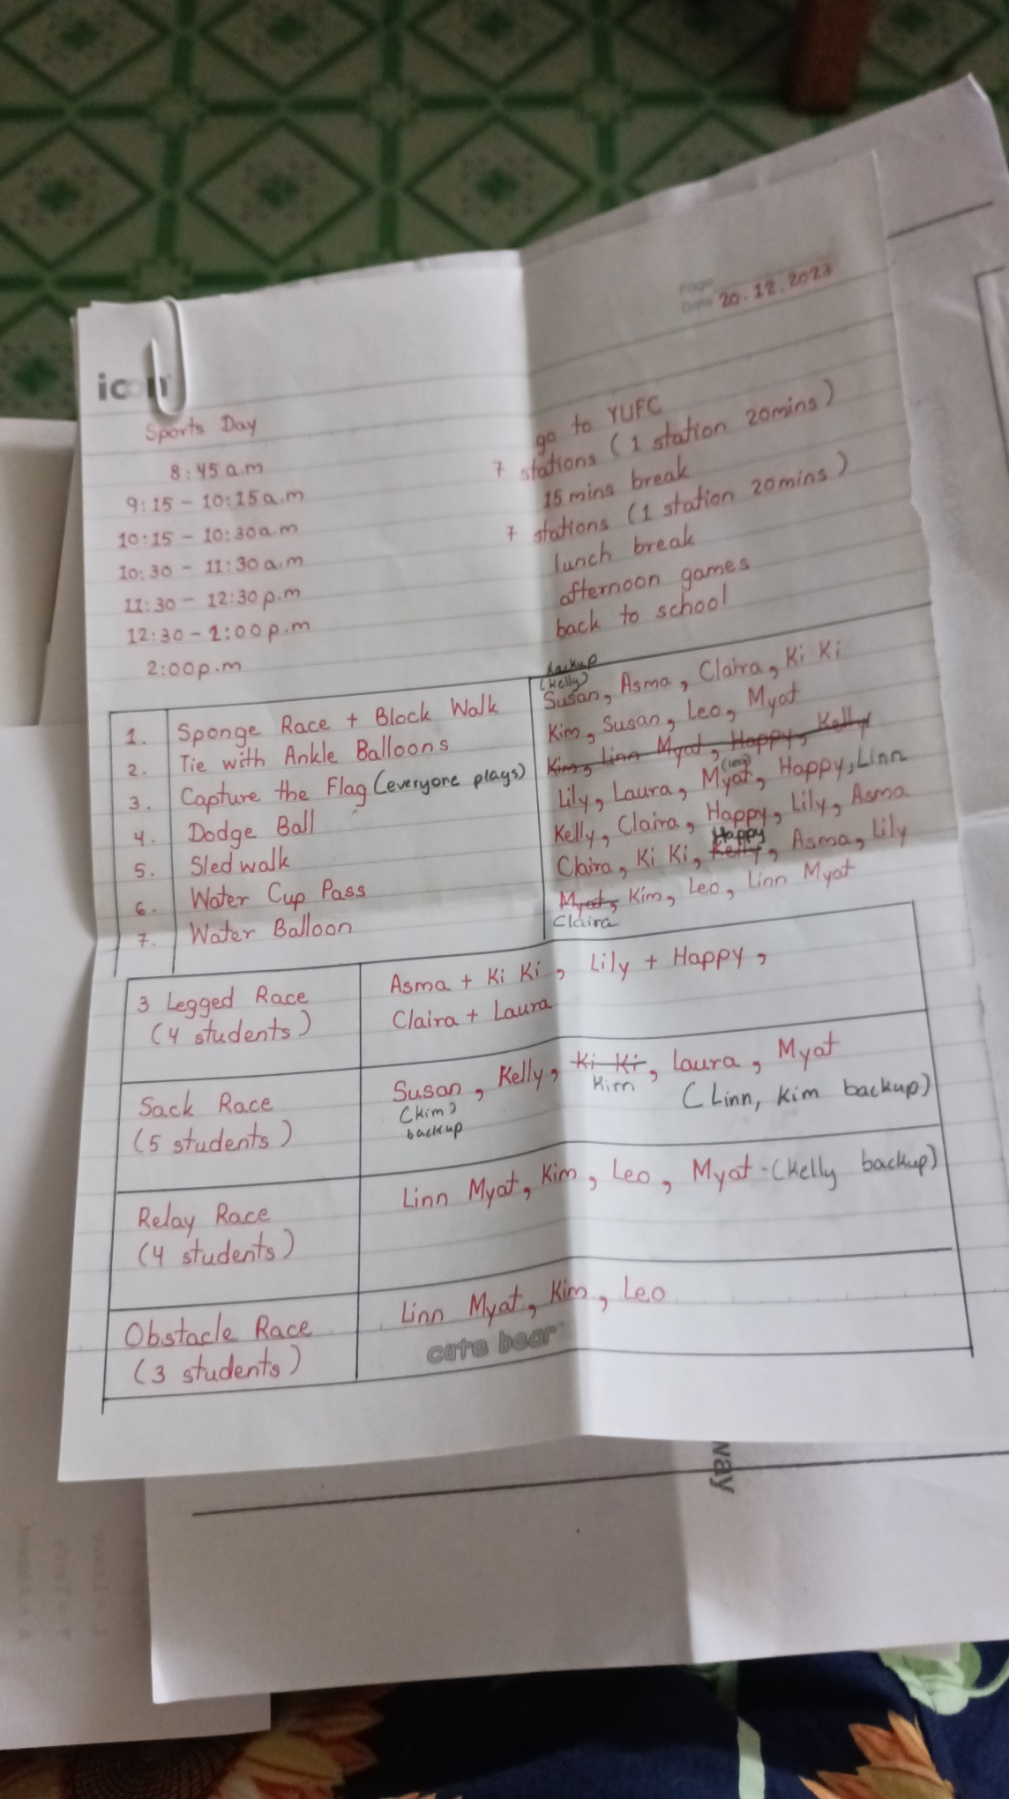 Page
Date 20.12.2023
icon
Sports Day
8:45 a.m go to YUFC
9:15 - 10:15 a.m 7 stations (1 station 20mins)
10:15 - 10:30 a.m 15 mins break
10:30 - 11:30 a.m 7 stations (1 station 20mins)
11:30 - 12:30 p.m lunch break
12:30 - 2:00 p.m afternoon games
2:00 p.m back to school
backup
(Kelly)
1. Sponge Race + Block Walk Susan, Asma, Claira, Ki Ki
2. Tie with Ankle Balloons Kim, Susan, Leo, Myat
3. Capture the Flag (everyone plays) Kim, Linn Myat, Happy, Kelly
(Leo)
4. Dodge Ball Lily, Laura, Myat, Happy, Linn
5. Sled walk Kelly, Claira, Happy, Lily, Asma
Happy
6. Water Cup Pass Claira, Ki Ki, Kelly, Asma, Lily
7. Water Balloon Myat, Kim, Leo, Linn Myat
Claira
3 Legged Race Asma + Ki Ki, Lily + Happy,
(4 students) Claira + Laura
Sack Race Susan, Kelly, Ki Ki, Laura, Myat
(5 students) (Kim) Kim (Linn, Kim backup)
backup
Relay Race Linn Myat, Kim, Leo, Myat - (Kelly backup)
(4 students)
Obstacle Race Linn Myat, Kim, Leo
(3 students)
cute bear
way